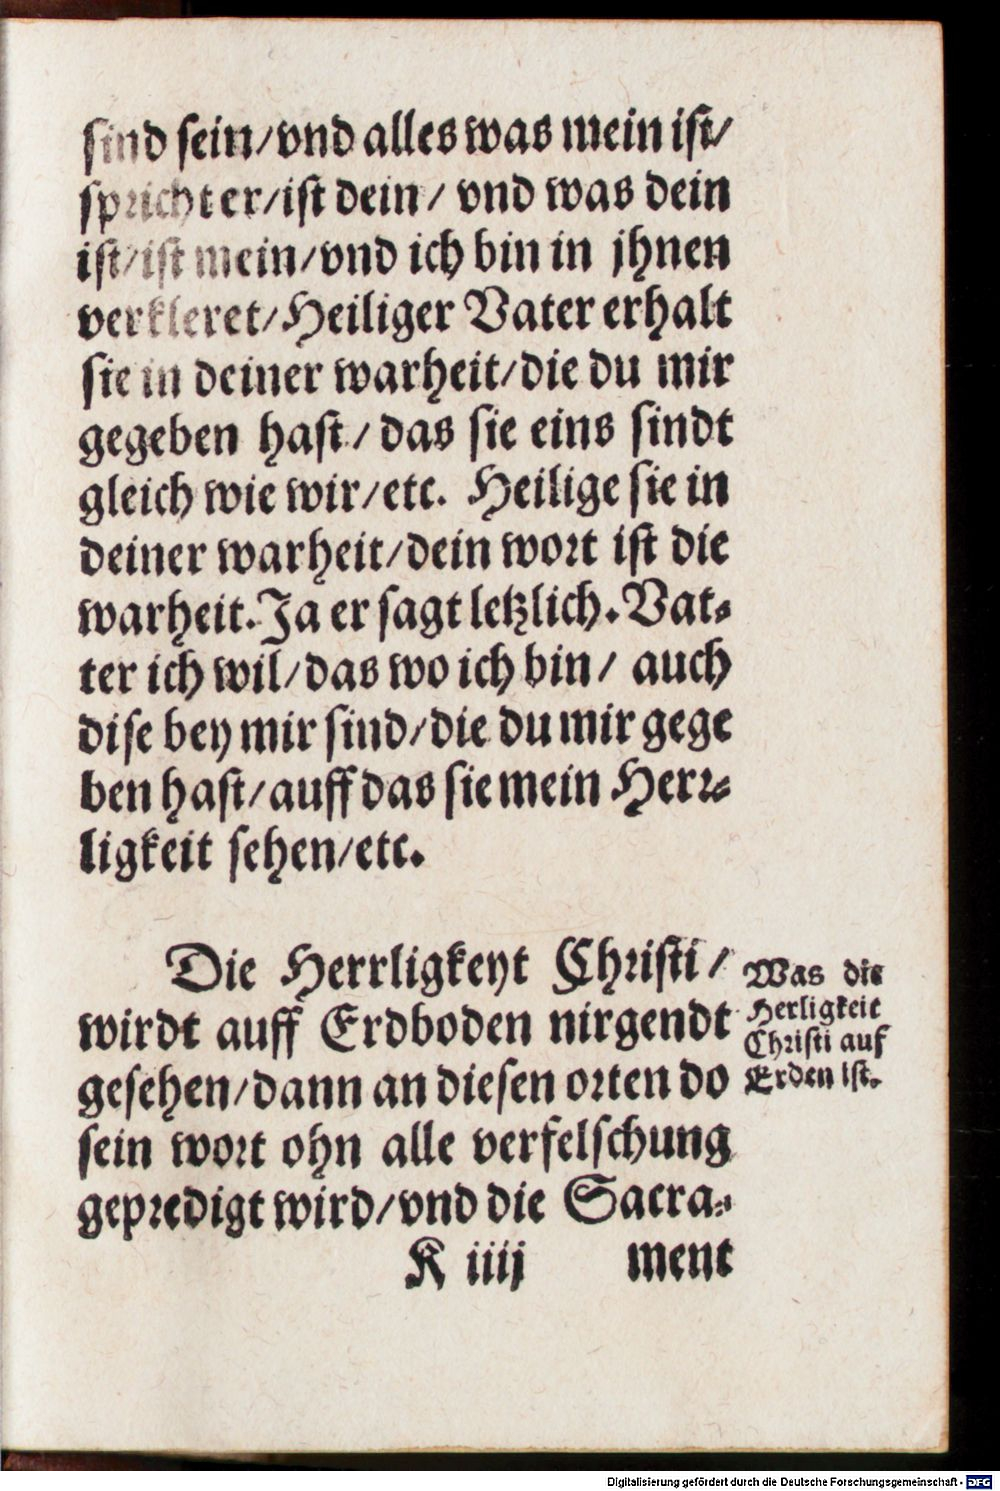 sind sein/vnd alles was mein ist/
spricht er/ist dein/ vnd was dein
ist/ist mein/vnd ich bin in jhnen
verkleret/Heiliger Vater erhalt
sie in deiner warheit/die du mir
gegeben hast/ das sie eins sindt
gleich wie wir/etc. Heilige sie in
deiner warheit/dein wort ist die
warheit.Ja er sagt letzlich.Vat-
ter ich wil/das wo ich bin/ auch
dise bey mir sind/die du mir gege
ben hast/auff das sie mein Herr-
ligkeit sehen/etc.
Die Herrligkeyt Christi/
wirdt auff Erdboden nirgendt
gesehen/dann an diesen orten do
sein wort ohn alle verfelschung
gepredigt wird/vnd die Sacra-
K iiij ment
Was die
Herligkeit
Christi auf
Erden ist.
Digitalisierung gefördert durch die Deutsche Forschungsgemeinschaft - DFG